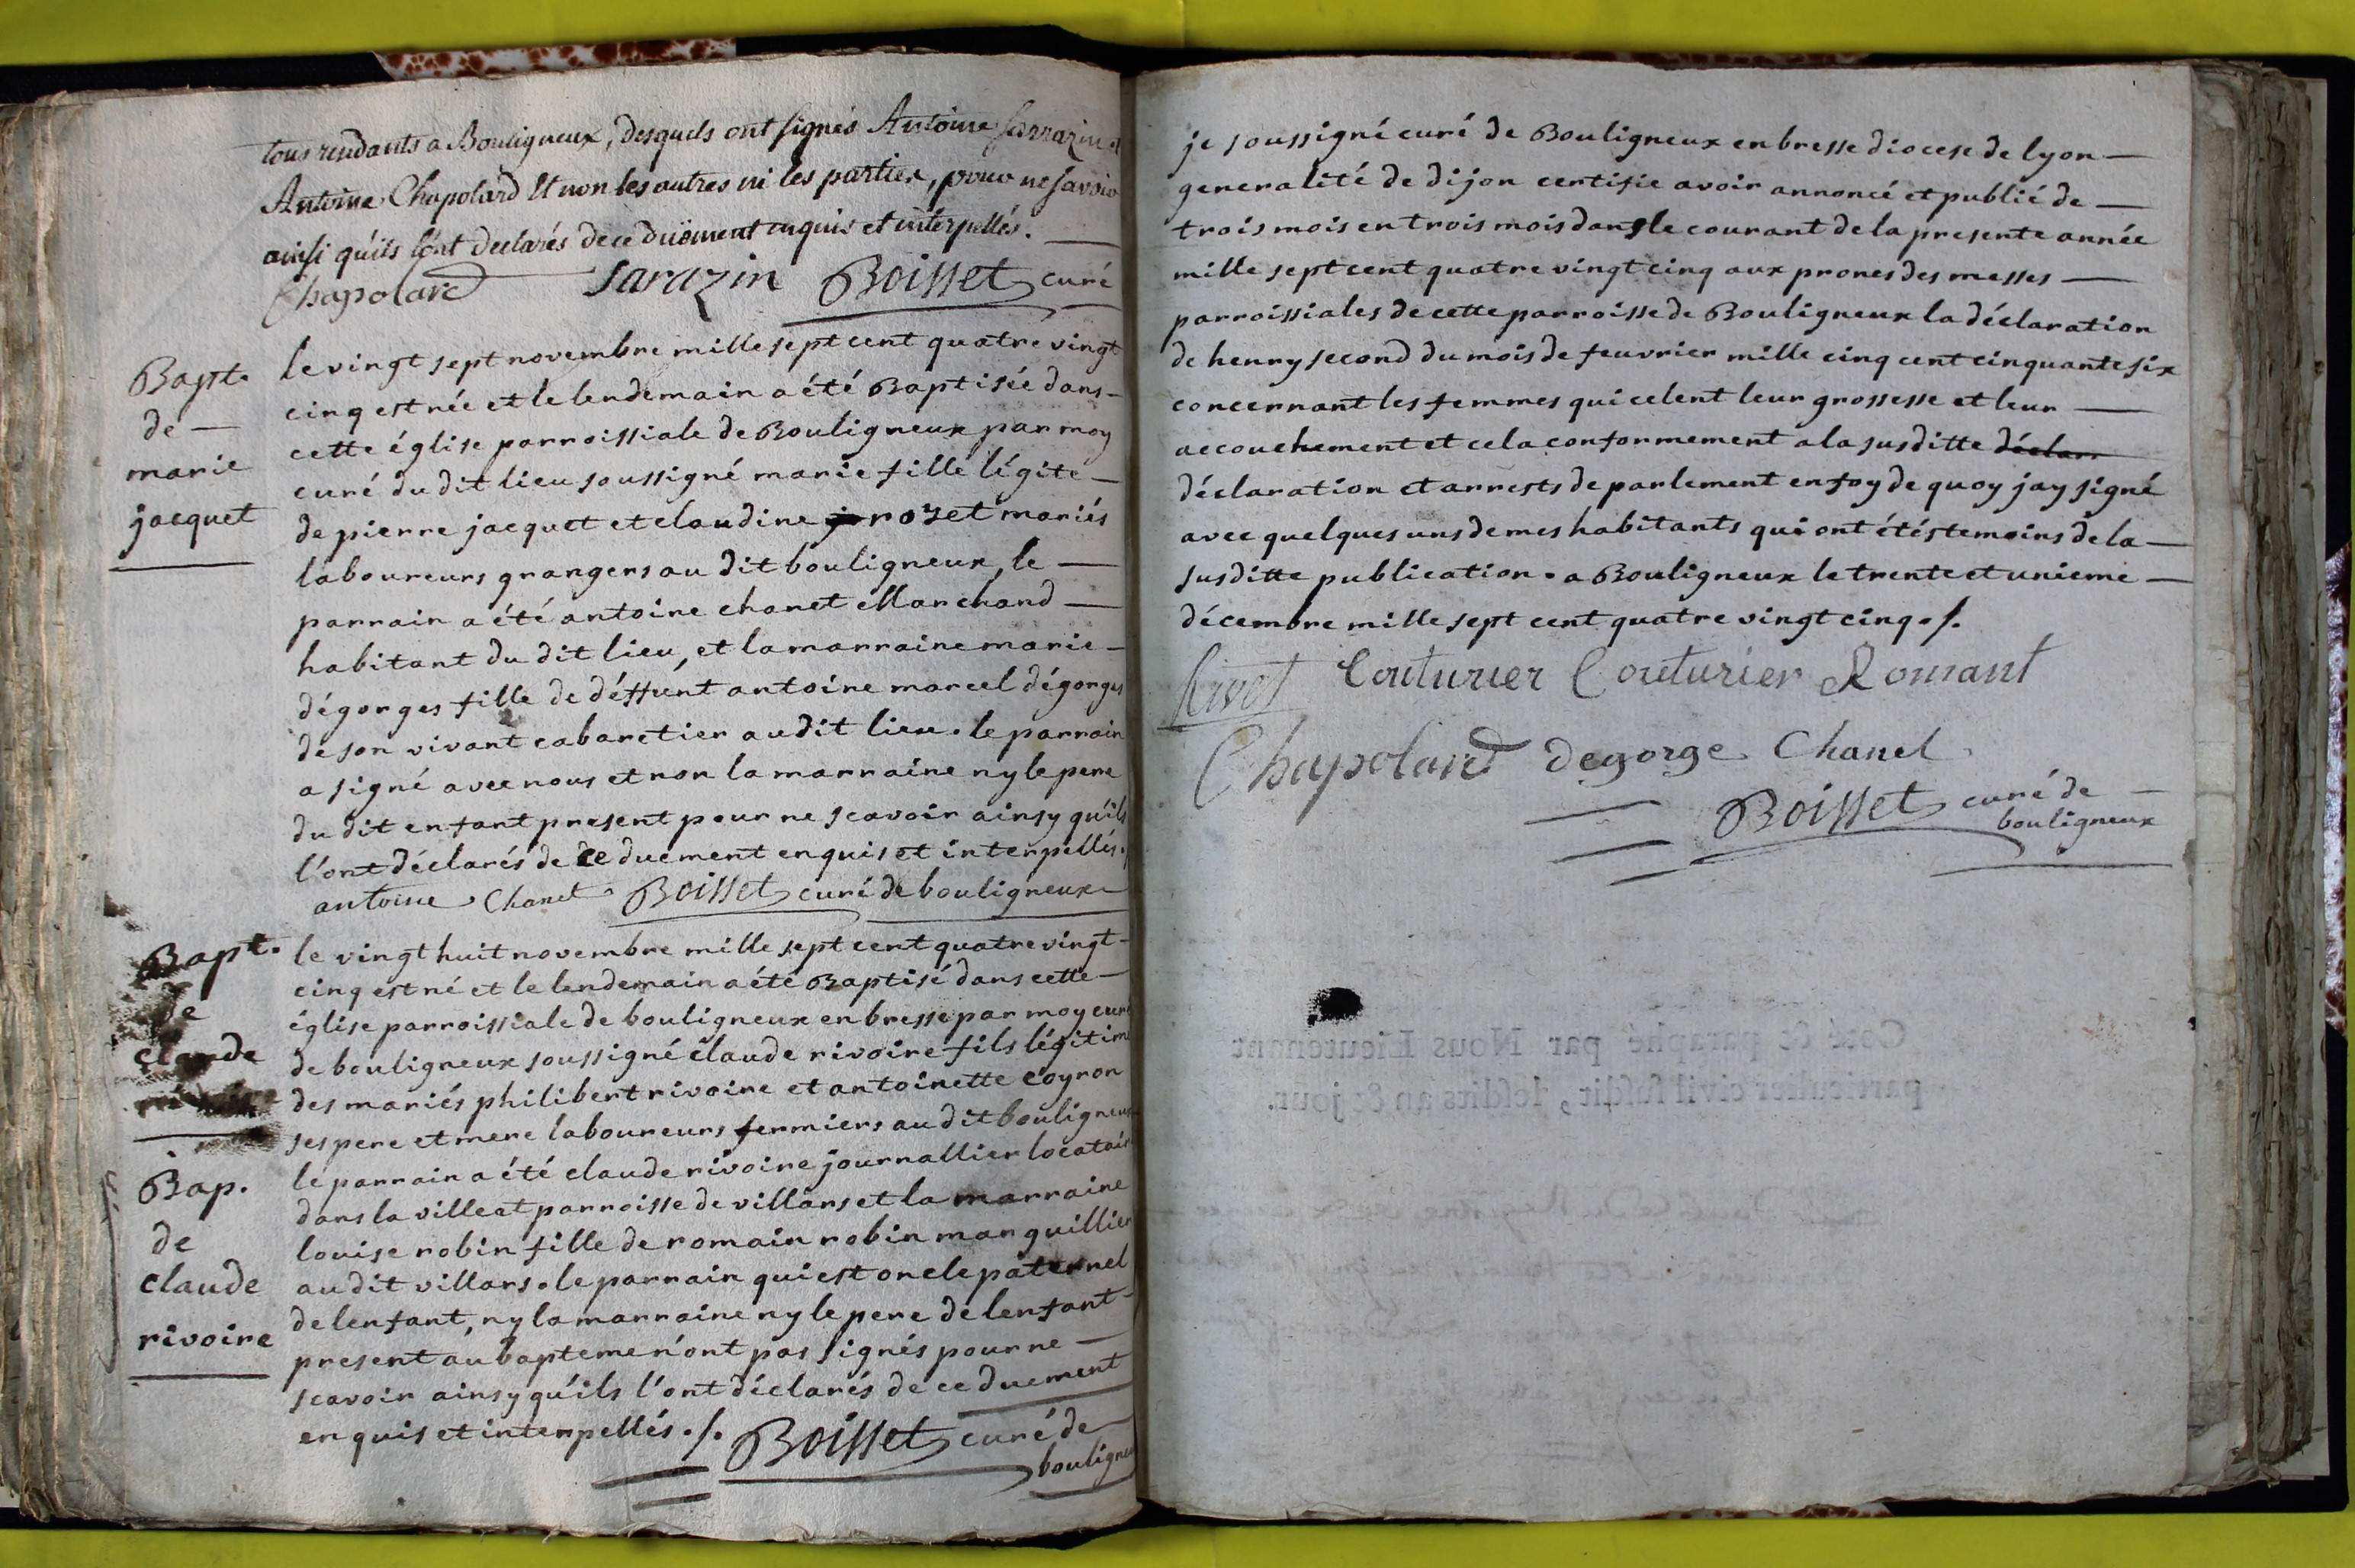 tous résidants a Bouligneux, desquels ont signés Antoine Sarrazin et
Antoine Chapolard Et non les autres ni les parties, pour ne savoir
ainsi qu'ils l'ont declarés de ce düement enquis et interpellés.
Chapolard Sarazin Boisset curé
Bapt.
de
marie
jacquet
le vingt sept novembre mille sept cent quatre vingt
cinq est née et le lendemain a été Baptisée dans
cette église parroissiale de Bouligneux par moy
curé du dit lieu soussigné marie fille légite
de pierre jacquet et claudine rozet mariés
laboureurs grangers au dit bouligneux, le
parrain a été antoine chanet Marchand
habitant du dit lieu, et la marraine marie
dégorges fille de déffunt antoine marcel dégorges
de son vivant cabaretier audit lieu. le parrain
a signé avec nous et non la marraine ny le pere
du dit enfant present pour ne scavoir ainsy qu'ils
l'ont déclarés de ce duement enquis et interpellés.
antoine Chanel Boisset curé de bouligneux
Bapt.
de
claude
le vingt huit novembre mille sept cent quatre vingt
cinq est né et le lendemain a été Baptisé dans cette
église parroissiale de bouligneux en bresse par moy curé
de bouligneux soussigné claude rivoire fils légitime
des mariés philibert rivoire et antoinette coyron
ses pere et mere laboureurs fermiers au dit bouligneux
le parrain a été claude rivoire journallier locataire
dans la ville et parroisse de villars et la marraine
louise robin fille de romain robin marguillier
au dit villars. le parrain qui est oncle paternel
de lenfant, ny la marraine ny le pere de lenfant
present au bapteme n'ont pas signés pour ne
scavoir ainsy qu'ils l'ont déclarés de ce duement
enquis et interpellés ./. Boisset curé de
bouligneux
Bap.
de
claude
rivoire
je soussigné curé de Bouligneux en bresse diocese de lyon
generalité de dijon certifie avoir annoncé et publié de
trois mois en trois mois dans le courant de la presente année
mille sept cent quatre vingt cinq aux prones des messes
parroissiales de cette parroisse de Bouligneux la déclaration
de henry second du mois de feuvrier mille cinq cent cinquante six
concernant les femmes qui celent leur grossesse et leur
accouchement et cela conformement a la susditte déclar
déclaration et arrests de parlement en foy de quoy jay signé
avec quelques uns de mes habitants qui ont étés temoins de la
susditte publication. a Bouligneux le trente et unieme
décembre mille sept cent quatre vingt cinq ./.
Couturier Couturier Romant
Chapolard Degorge Chanel
Boisset curé de
bouligneux